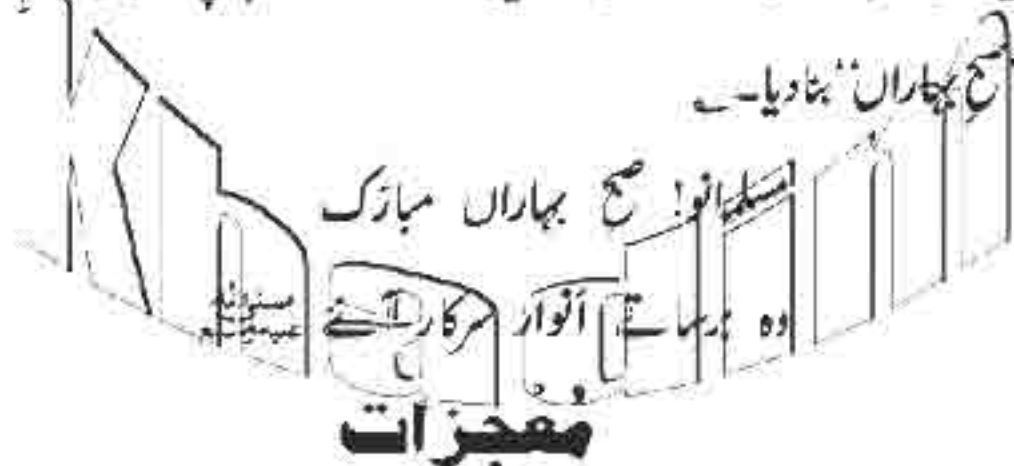 صبحِ بہاراں‘‘ بنا دیا۔
مسلمانو! صبح بہاراں مبارَک
وہ برساتے اَنوار سرکار آئے
مُعجزات